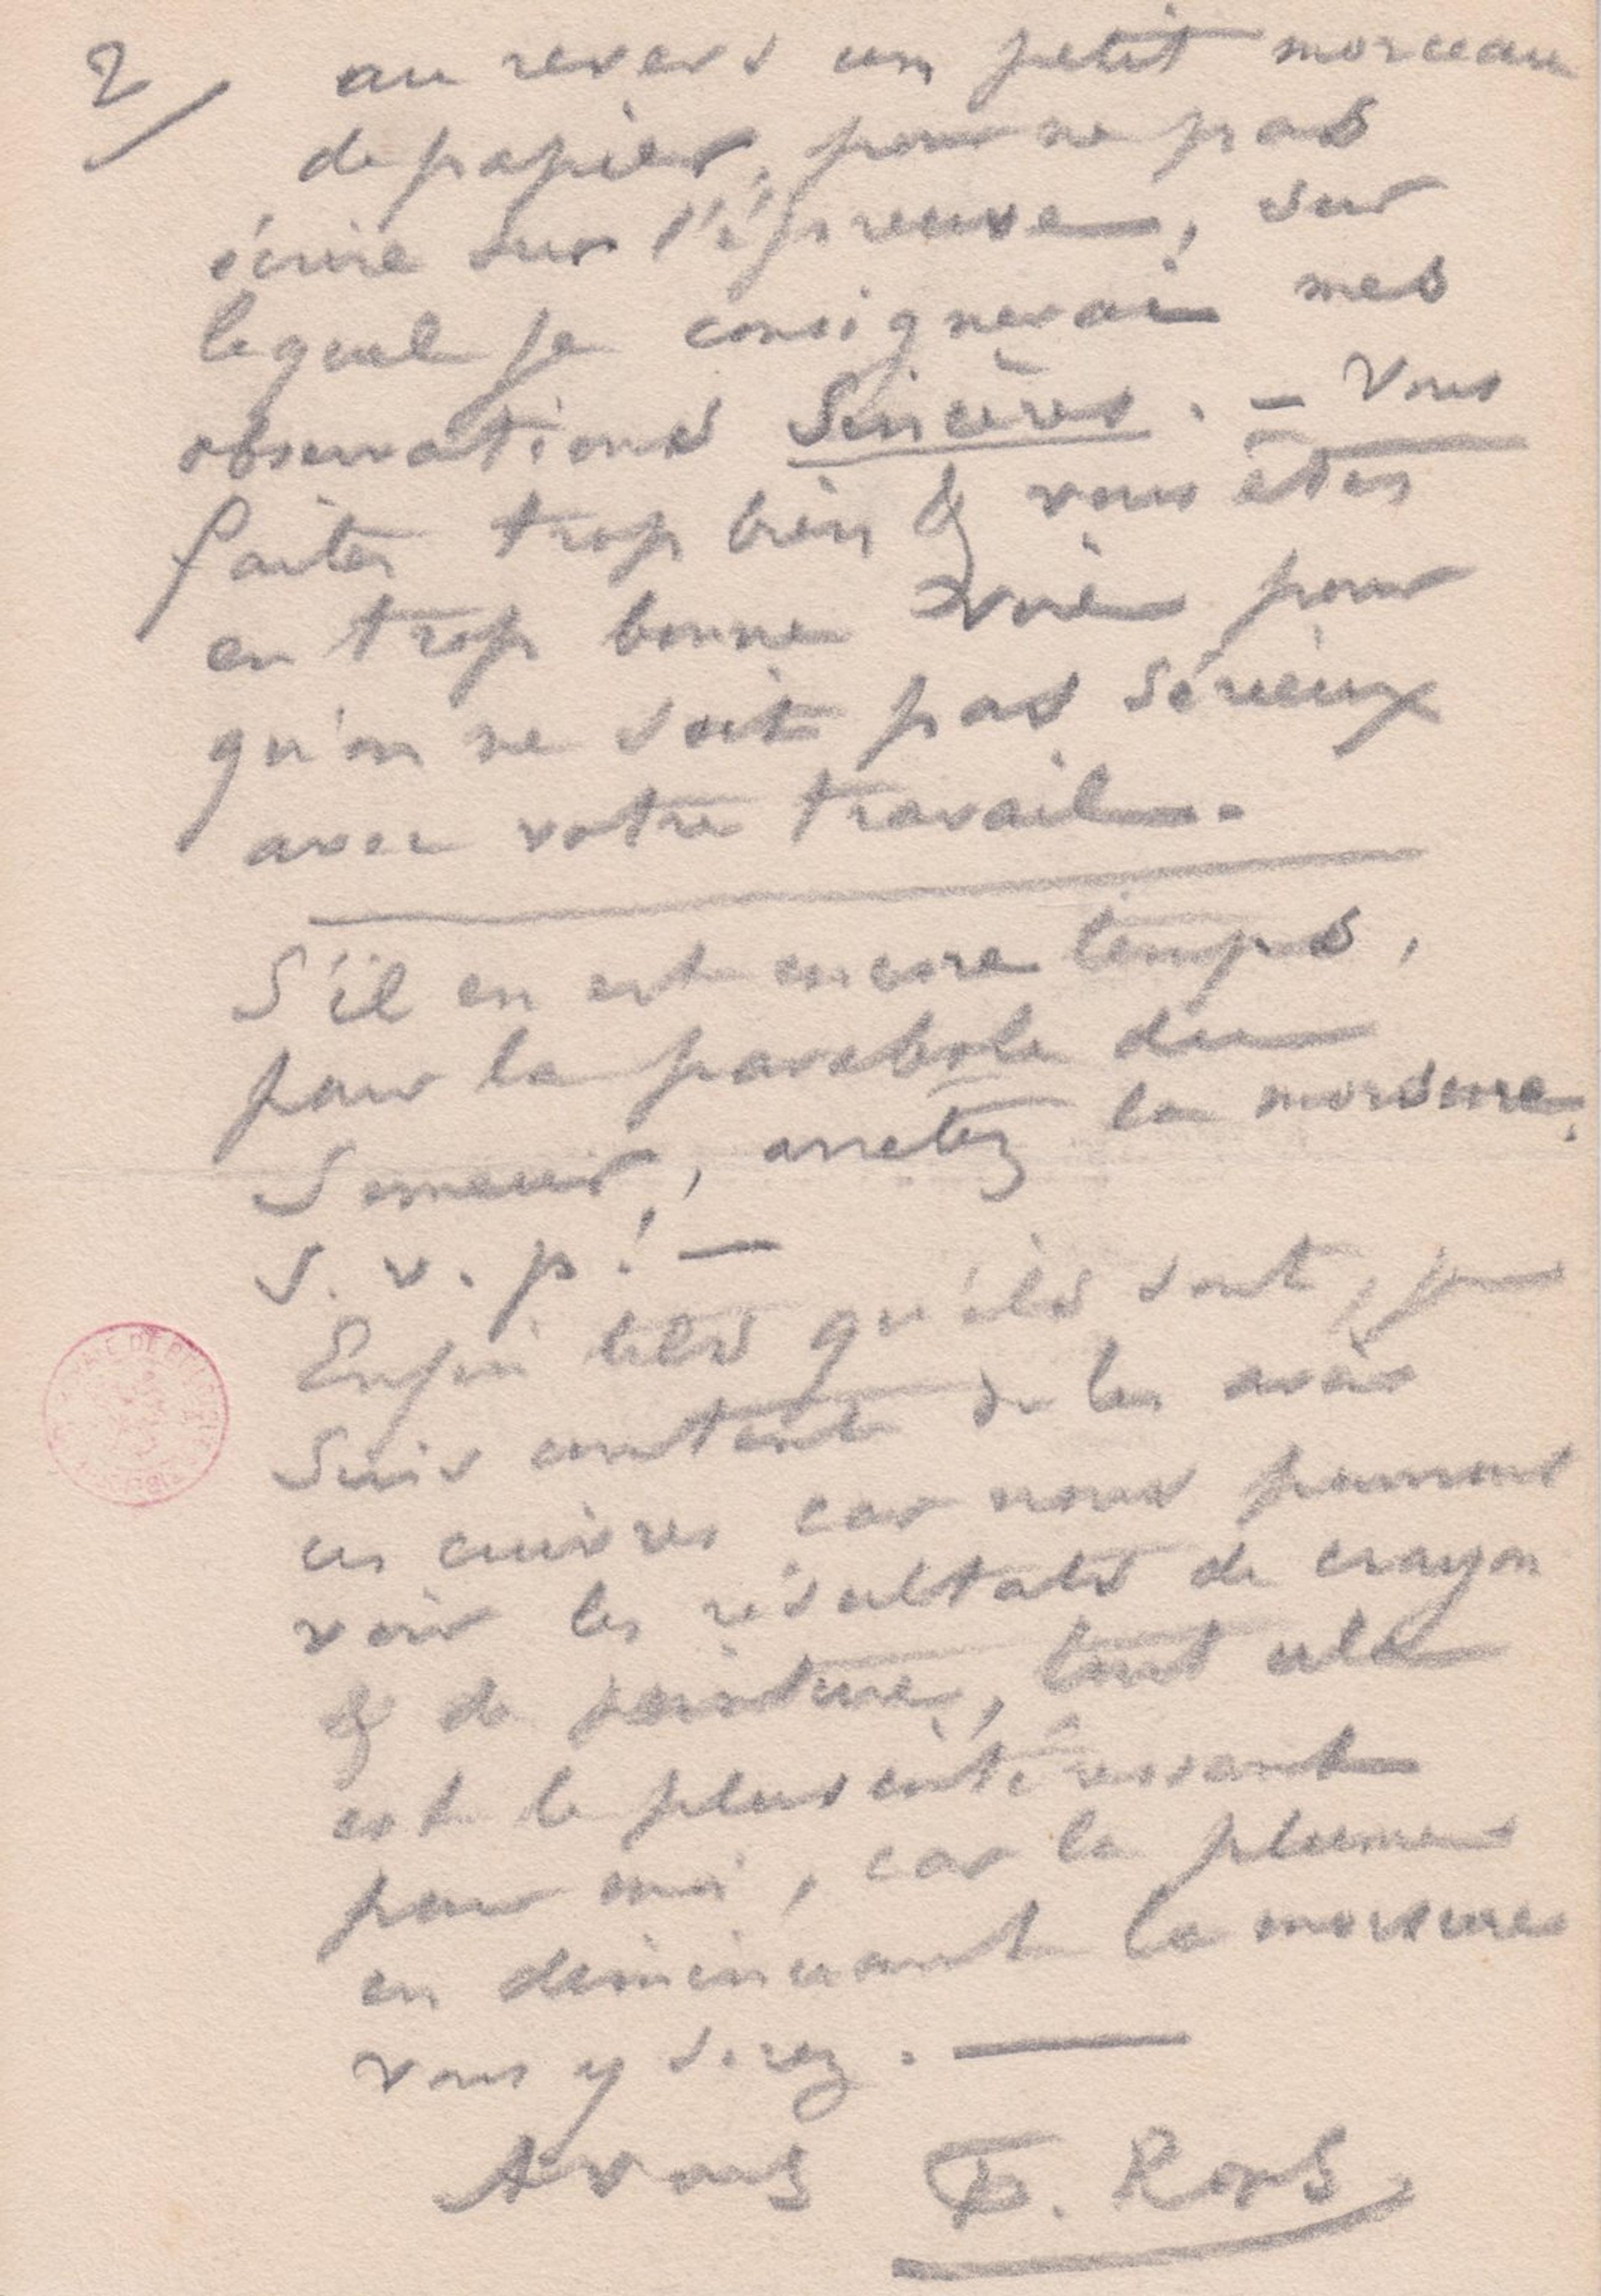 2/ au revers un petit morceau
de papier, pour ne pas
écrire sur l'épreuve, sur
lequel je consignerai mes
observations Sincères. – Vous
faites trop bien & vous êtes
en trop bonne voie pour
qu'on ne soit pas Sérieux
avec votre travail.
S'il en est encore temps,
pour la parabole du
Semeur, arretez la morsure,
S. v. p! —
Enfin tels qu'ils sont, je
Suis content de les avoir
ces cuivres car nous pourrons
voir les résultats de crayon
& de peinture, tout cela
est le plus intéressant
pour moi, car la plume
en diminuant la morsure
vous y serez. —
A vous F. Rops